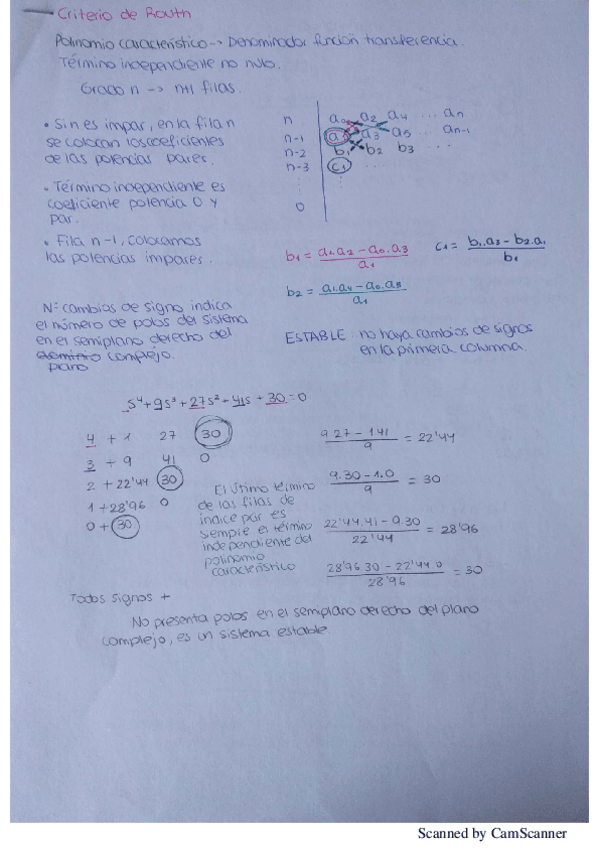 Criterio de Routh
Polinomio característico → Denominador función transferencia.
Término independiente no nulo.
Grado n → n+1 filas.
• Si n es impar, en la fila n
se colocan los coeficientes
de las potencias pares.
• Término independiente es
coeficiente potencia 0 y
par.
• Fila n-1, colocamos
las potencias impares.
n a₀ a₂ a₄ ... an
n-1 a₁ a₃ a₅ ... an-1
n-2 b₁ b₂ b₃ ..
n-3 c₁ ...
0
b₁ = (a₁.a₂ - a₀.a₃) / a₁
c₁ = (b₁.a₃ - b₂.a₁) / b₁
b₂ = (a₁.a₄ - a₀.a₅) / a₁
Nº cambios de signo indica
el número de polos del sistema
en el semiplano derecho del
plano complejo.
ESTABLE : no haya cambios de signos
en la primera columna.
s⁴+9s³+27s²+41s+30=0
4 + 1 27 30
3 + 9 41 0
2 + 22'44 30
1 + 28'96 0
0 + 30
(9.27 - 1.41) / 9 = 22'44
(9.30 - 1.0) / 9 = 30
(22'44.41 - 9.30) / 22'44 = 28'96
(28'96.30 - 22'44.0) / 28'96 = 30
El último término
de las filas de
índice par es
siempre el término
independiente del
polinomio
característico
Todos signos +
No presenta polos en el semiplano derecho del plano
complejo, es un sistema estable
Scanned by CamScanner